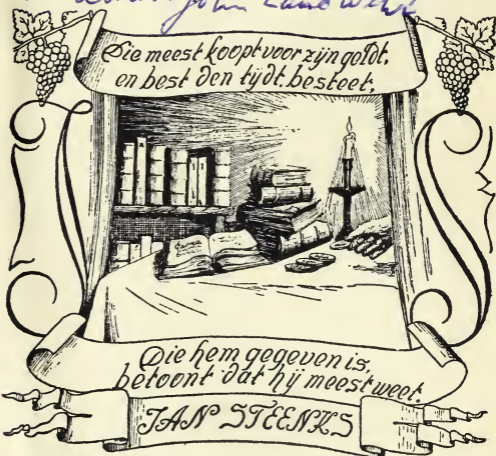 John Landwehr
Die meest koopt voor zijn goldt,
en best den tijdt besteet,
Die hem gegeven is,
betoont dat hij meest weet.
JAN STEENKS